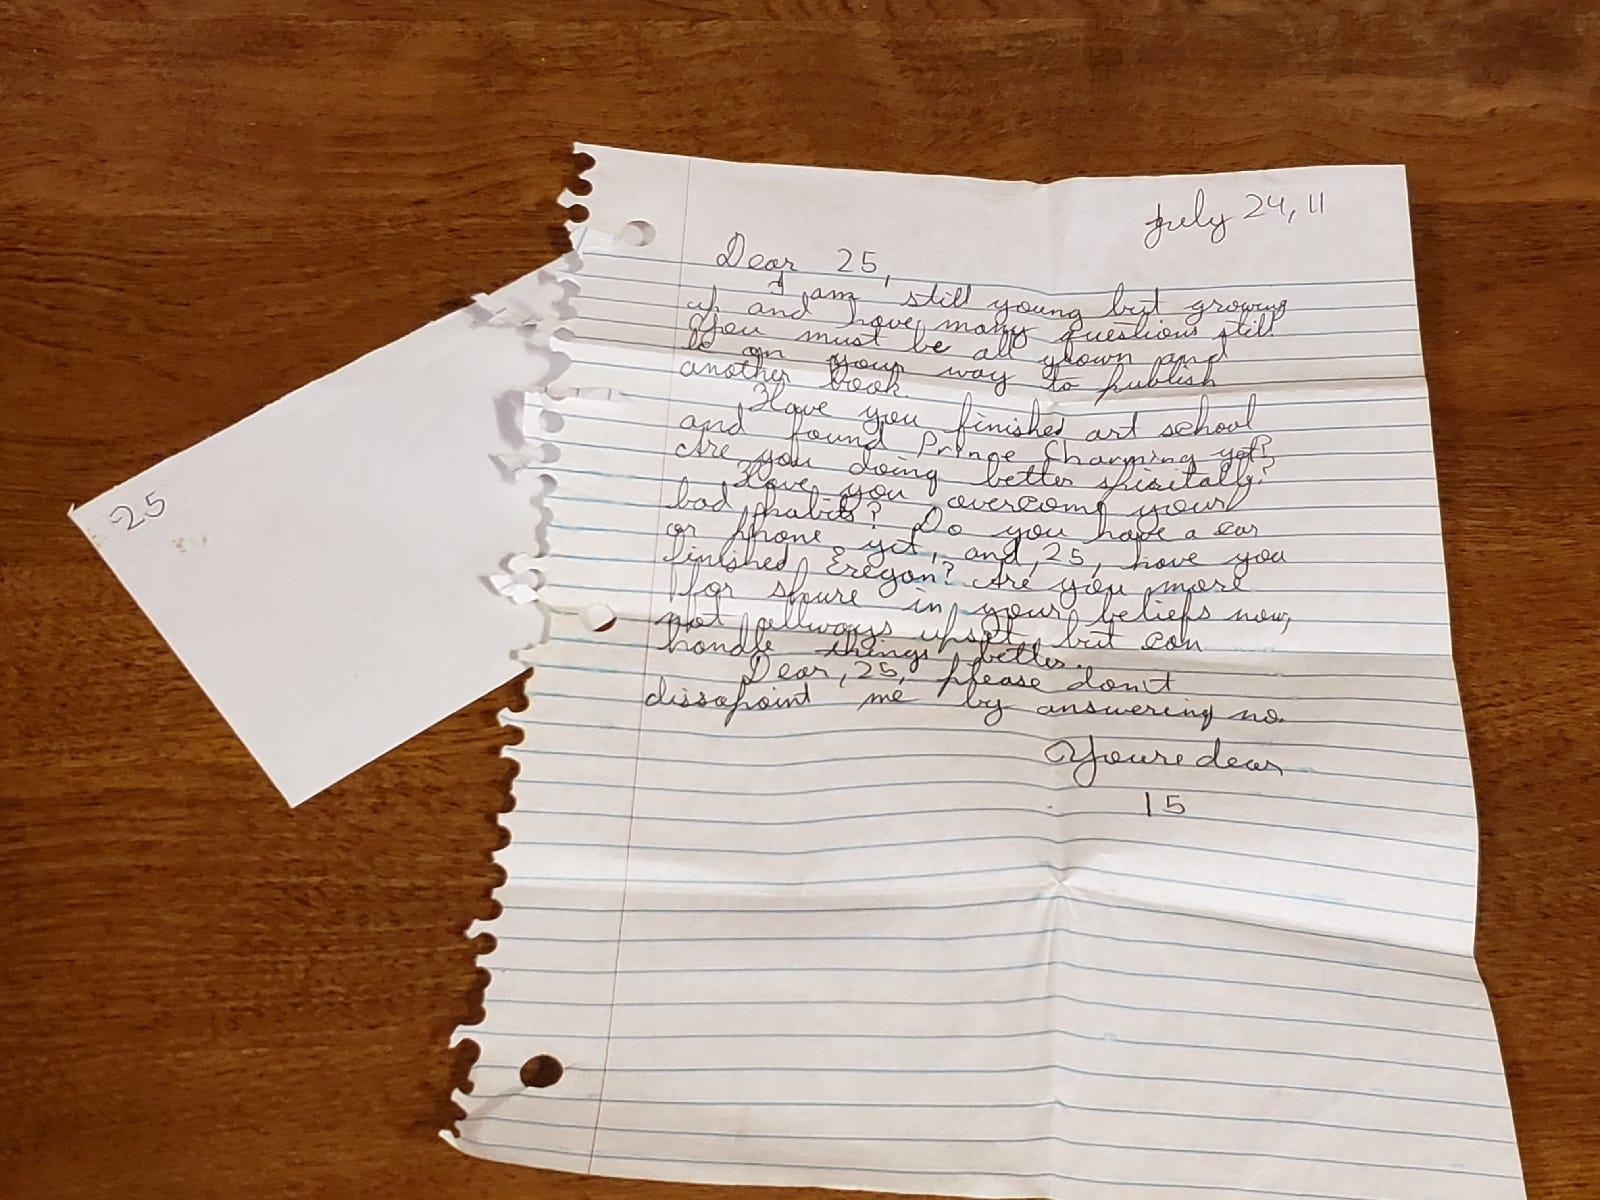 July 24, 11
Dear 25,
I am still young but growing
up and have many questions still.
You must be all grown and
be on your way to publish
another book.
Have you finished art school
and found Prince Charming yet?
Are you doing better spiritally?
Have you overcome your
bad habits? Do you have a car
or phone yet, and, 25, have you
finished Eregon? Are you more
for shure in your beliefs now,
not allways upset, but can
handle things better.
Dear, 25, please don't
dissapoint me by answering no.
Youre dear,
15
25